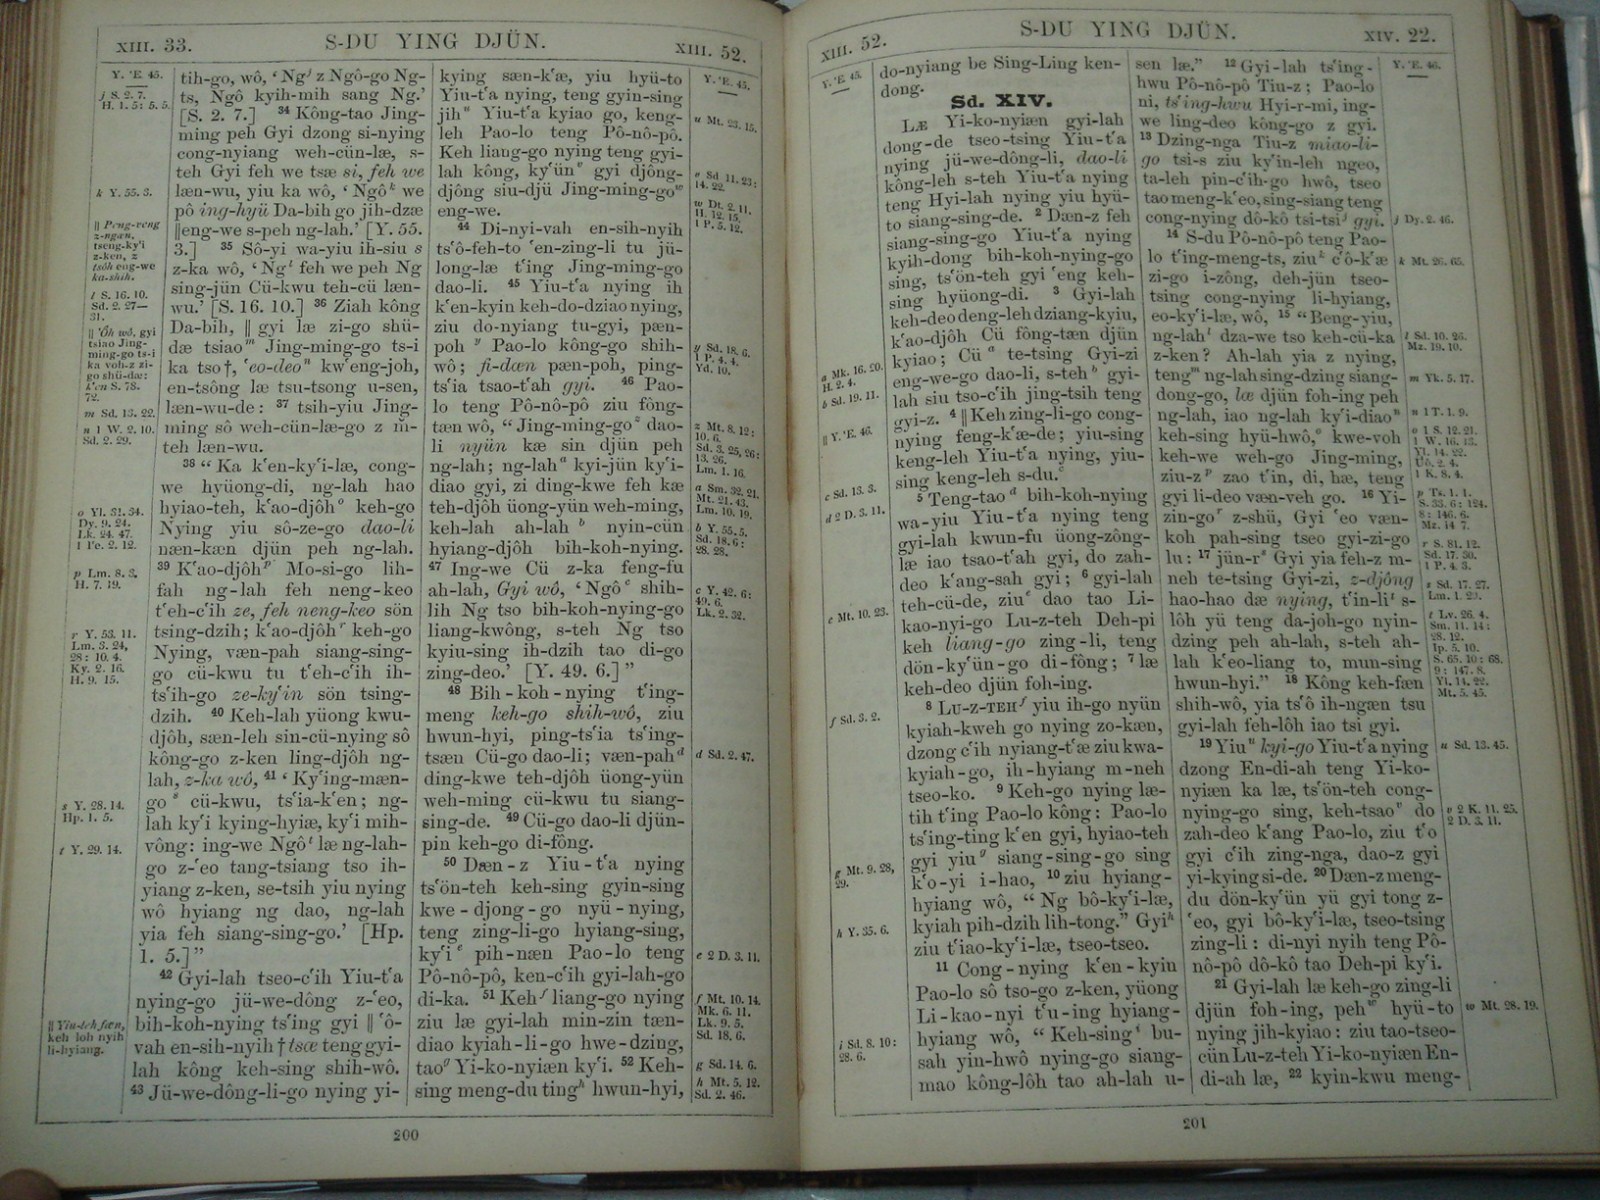 XIII. 33.
S-DU YING DJÜN.
XIII. 52.
Y. 'E. 45.
j S. 2. 7.
H. 1. 5: 5. 5.
k Y. 55. 3.
|| Peng-veng
z-ngæn,
tseng-ky'i
z-ken, z
tsôh eng-we
ka-shih.
l S. 16. 10.
Sd. 2. 27—
31.
|| 'Ôh wô, gyi
tsiao Jing-
ming-go ts-i
ka voh-z zi-
go shü-dæ:
k'en S. 78.
72.
m Sd. 13. 22.
n 1 W. 2. 10.
Sd. 2. 29.
o Yl. 31. 34.
Dy. 9. 24.
Lk. 24. 47.
1 Pe. 2. 12.
p Lm. 8. 3.
H. 7. 19.
r Y. 53. 11.
Lm. 3. 24,
28: 10. 4.
Ky. 2. 16.
H. 9. 15.
s Y. 28. 14.
Hp. 1. 5.
t Y. 29. 14.
|| Yiu-teh fæn,
keh loh nyih
li-hyiang.
tih-go, wô, ‘Ngʲ z Ngô-go Ng-
ts, Ngô kyih-mih sang Ng.’
[S. 2. 7.] ³⁴ Kông-tao Jing-
ming peh Gyi dzong si-nying
cong-nyiang weh-cün-læ, s-
teh Gyi feh we tsæ si, feh we
læn-wu, yiu ka wô, ‘ Ngôᵏ we
pô ing-hyü Da-bih go jih-dzæ
||eng-we s-peh ng-lah.’ [Y. 55.
3.] ³⁵ Sô-yi wa-yiu ih-siu s
z-ka wô, ‘ Ngˡ feh we peh Ng
sing-jün Cü-kwu teh-cü læn-
wu.’ [S. 16. 10.] ³⁶ Ziah kông
Da-bih, || gyi læ zi-go shü-
dæ tsiaoᵐ Jing-ming-go ts-i
ka tso†, 'eo-deoⁿ kw'eng-joh,
en-tsông læ tsu-tsong u-sen,
læn-wu-de: ³⁷ tsih-yiu Jing-
ming sô weh-cün-læ-go z m-
teh læn-wu.
³⁸ “ Ka k'en-ky'i-læ, cong-
we hyüong-di, ng-lah hao
hyiao-teh, k'ao-djôhᵒ keh-go
Nying yiu sô-ze-go dao-li
næn-kæn djün peh ng-lah.
³⁹ K'ao-djôhᵖ Mo-si-go lih-
fah ng-lah feh neng-keo
t'eh-c'ih ze, feh neng-keo sön
tsing-dzih; k'ao-djôhʳ keh-go
Nying, væn-pah siang-sing-
go cü-kwu tu t'eh-c'ih ih-
ts'ih-go ze-ky'in sön tsing-
dzih. ⁴⁰ Keh-lah yüong kwu-
djôh, sæn-leh sin-cü-nying sô
kông-go z-ken ling-djôh ng-
lah, z-ka wô, ⁴¹ ‘ Ky'ing-mæn-
goˢ cü-kwu, ts'ia-k'en; ng-
lah ky'i kying-hyiæ, ky'i mih-
vông: ing-we Ngôᵗ læ ng-lah-
go z-'eo tang-tsiang tso ih-
yiang z-ken, se-tsih yiu nying
wô hyiang ng dao, ng-lah
yia feh siang-sing-go.’ [Hp.
1. 5.]”
⁴² Gyi-lah tseo-c'ih Yiu-t'a
nying-go jü-we-dông z-'eo,
bih-koh-nying ts'ing gyi || 'ô-
vah en-sih-nyih † tsæ teng gyi-
lah kông keh-sing shih-wô.
⁴³ Jü-we-dông-li-go nying yi-
kying sæn-k'æ, yiu hyü-to
Yiu-t'a nying, teng gyin-sing
jihᵘ Yiu-t'a kyiao go, keng-
leh Pao-lo teng Pô-nô-pô.
Keh liang-go nying teng gyi-
lah kông, ky'ünᵛ gyi djông-
djông siu-djü Jing-ming-goʷ
eng-we.
⁴⁴ Di-nyi-vah en-sih-nyih
ts'ô-feh-to 'en-zing-li tu jü-
long-læ t'ing Jing-ming-go
dao-li. ⁴⁵ Yiu-t'a nying ih
k'en-kyin keh-do-dziao nying,
ziu do-nyiang tu-gyi, pæn-
poh ʸ Pao-lo kông-go shih-
wô; fi-dæn pæn-poh, ping-
ts'ia tsao-t'ah gyi. ⁴⁶ Pao-
lo teng Pô-nô-pô ziu fông-
tæn wô, “ Jing-ming-goᶻ dao-
li nyün kæ sin djün peh
ng-lah; ng-lahᵃ kyi-jün ky'i-
diao gyi, zi ding-kwe feh kæ
teh-djôh üong-yün weh-ming,
keh-lah ah-lah ᵇ nyin-cün
hyiang-djôh bih-koh-nying.
⁴⁷ Ing-we Cü z-ka feng-fu
ah-lah, Gyi wô, ‘ Ngôᶜ shih-
lih Ng tso bih-koh-nying-go
liang-kwông, s-teh Ng tso
kyiu-sing ih-dzih tao di-go
zing-deo.’ [Y. 49. 6.]”
⁴⁸ Bih-koh-nying t'ing-
meng keh-go shih-wô, ziu
hwun-hyi, ping-ts'ia ts'ing-
tsæn Cü-go dao-li; væn-pahᵈ
ding-kwe teh-djôh üong-yün
weh-ming cü-kwu tu siang-
sing-de. ⁴⁹ Cü-go dao-li djün-
pin keh-go di-fông.
⁵⁰ Dæn-z Yiu-t'a nying
ts'ön-teh keh-sing gyin-sing
kwe-djong-go nyü-nying,
teng zing-li-go hyiang-sing,
ky'iᵉ pih-næn Pao-lo teng
Pô-nô-pô, ken-c'ih gyi-lah-go
di-ka. ⁵¹ Kehᶠ liang-go nying
ziu læ gyi-lah min-zin tæn-
diao kyiah-li-go hwe-dzing,
taoᵍ Yi-ko-nyiæn ky'i. ⁵² Keh-
sing meng-du tingʰ hwun-hyi,
Y. 'E. 45.
u Mt. 23. 15.
v Sd 11. 23:
14. 22.
w Dt. 2. 11.
H. 12. 15.
1 P. 5. 12.
y Sd. 18. 6.
1 P. 4. 4.
Yd. 10.
z Mt. 8. 12:
10. 6.
Sd. 3. 25, 26:
13. 26.
Lm. 1. 16.
a Sm. 32. 21.
Mt. 21. 43.
Lm. 10. 19.
b Y. 55. 5.
Sd. 18. 6:
28. 28.
c Y. 42. 6:
49. 6.
Lk. 2. 32.
d Sd. 2. 47.
e 2 D. 3. 11.
f Mt. 10. 14.
Mk. 6. 11.
Lk. 9. 5.
Sd. 18. 6.
g Sd. 14. 6.
h Mt. 5. 12.
Sd. 2. 46.
200
XIII. 52.
S-DU YING DJÜN.
XIV. 22.
Y. 'E. 45.
a Mk. 16. 20.
H. 2. 4.
b Sd. 19. 11.
|| Y. 'E. 46.
c Sd. 13. 3.
d 2 D. 3. 11.
e Mt. 10. 23.
f Sd. 3. 2.
g Mt. 9. 28,
29.
h Y. 35. 6.
i Sd. 8. 10:
28. 6.
do-nyiang be Sing-Ling ken-
dong.
Sd. XIV.
LÆ Yi-ko-nyiæn gyi-lah
dong-de tseo-tsing Yiu-t'a
nying jü-we-dông-li, dao-li
kông-leh s-teh Yiu-t'a nying
teng Hyi-lah nying yiu hyü-
to siang-sing-de. ² Dæn-z feh
siang-sing-go Yiu-t'a nying
kyih-dong bih-koh-nying-go
sing, ts'ön-teh gyi 'eng keh-
sing hyüong-di. ³ Gyi-lah
keh-deo deng-leh dziang-kyiu,
k'ao-djôh Cü fông-tæn djün
kyiao; Cüᵃ te-tsing Gyi-zi
eng-we-go dao-li, s-tehᵇ gyi-
lah siu tso-c'ih jing-tsih teng
gyi-z. ⁴ || Keh zing-li-go cong-
nying feng-k'æ-de; yiu-sing
keng-leh Yiu-t'a nying, yiu-
sing keng-leh s-du.ᶜ
⁵ Teng-taoᵈ bih-koh-nying
wa-yiu Yiu-t'a nying teng
gyi-lah kwun-fu üong-zông-
læ iao tsao-t'ah gyi, do zah-
deo k'ang-sah gyi; ⁶ gyi-lah
teh-cü-de, ziuᵉ dao tao Li-
kao-nyi-go Lu-z-teh Deh-pi
keh liang-go zing-li, teng
dön-ky'ün-go di-fông; ⁷ læ
keh-deo djün foh-ing.
⁸ LU-Z-TEHᶠ yiu ih-go nyün
kyiah-kweh go nying zo-kæn,
dzong c'ih nyiang-t'æ ziu kwa-
kyiah-go, ih-hyiang m-neh
tseo-ko. ⁹ Keh-go nying læ-
tih t'ing Pao-lo kông: Pao-lo
ts'ing-ting k'en gyi, hyiao-teh
gyi yiuᵍ siang-sing-go sing
k'o-yi i-hao, ¹⁰ ziu hyiang-
hyiang wô, “ Ng bô-ky'i-læ,
kyiah pih-dzih lih-tong.” Gyiʰ
ziu t'iao-ky'i-læ, tseo-tseo.
¹¹ Cong-nying k'en-kyin
Pao-lo sô tso-go z-ken, yüong
Li-kao-nyi t'u-ing hyiang-
hyiang wô, “ Keh-singⁱ bu-
sah yin-hwô nying-go siang-
mao kông-lôh tao ah-lah u-
sen læ.” ¹² Gyi-lah ts'ing-
hwu Pô-nô-pô Tiu-z; Pao-lo
ni, ts'ing-hwu Hyi-r-mi, ing-
we ling-deo kông-go z gyi.
¹³ Dzing-nga Tiu-z miao-li-
go tsi-s ziu ky'in-leh ngeo,
ta-leh pin-c'ih-go hwô, tseo
tao meng-k'eo, sing-siang teng
cong-nying dô-kô tsi-tsiʲ gyi.
¹⁴ S-du Pô-nô-pô teng Pao-
lo t'ing-meng-ts, ziuᵏ c'ô-k'æ
zi-go i-zông, deh-jün tseo-
tsing cong-nying li-hyiang,
eo-ky'i-læ, wô, ¹⁵ “ Beng-yiu,
ng-lahˡ dza-we tso keh-cü-ka
z-ken? Ah-lah yia z nying,
tengᵐ ng-lah sing-dzing siang-
dong-go, læ djün foh-ing peh
ng-lah, iao ng-lah ky'i-diaoⁿ
keh-sing hyü-hwô,ᵒ kwe-voh
keh-we weh-go Jing-ming,
ziu-z ᵖ zao t'in, di, hæ, teng
gyi li-deo væn-veh go. ¹⁶ Yi-
zin-goʳ z-shü, Gyi 'eo væn-
koh pah-sing tseo gyi-zi-go
lu: ¹⁷ jün-rˢ Gyi yia feh-z m-
neh te-tsing Gyi-zi, z-djông
hao-hao dæ nying, t'in-liᵗ s-
lôh yü teng da-joh-go nyin-
dzing peh ah-lah, s-teh ah-
lah k'eo-liang to, mun-sing
hwun-hyi.” ¹⁸ Kông keh-fæn
shih-wô, yia ts'ô ih-ngæn tsu
gyi-lah feh-lôh iao tsi gyi.
¹⁹ Yiuᵘ kyi-go Yiu-t'a nying
dzong En-di-ah teng Yi-ko-
nyiæn ka læ, ts'ön-teh cong-
nying-go sing, keh-tsaoᵛ do
zah-deo k'ang Pao-lo, ziu t'o
gyi c'ih zing-nga, dao-z gyi
yi-kying si-de. ²⁰ Dæn-z meng-
du dön-ky'ün yü gyi tong z-
'eo, gyi bô-ky'i-læ, tseo-tsing
zing-li: di-nyi nyih teng Pô-
nô-pô dô-kô tao Deh-pi ky'i.
²¹ Gyi-lah læ keh-go zing-li
djün foh-ing, pehʷ hyü-to
nying jih-kyiao: ziu tao-tseo-
cün Lu-z-teh Yi-ko-nyiæn En-
di-ah læ, ²² kyin-kwu meng-
Y. 'E. 46.
j Dy. 2. 46.
k Mt. 26. 65.
l Sd. 10. 26.
Mz. 19. 10.
m Yk. 5. 17.
n 1 T. 1. 9.
o 1 S. 12. 21.
1 W. 16. 13.
Yl. 14. 22.
Uô. 2. 4.
1 K. 8. 4.
p Ts. 1. 1.
S. 33. 6: 124.
8: 146. 6.
Mz. 14 7.
r S. 81. 12.
Sd. 17. 30.
1 P. 4. 3.
s Sd. 17. 27.
Lm. 1. 20.
t Lv. 26. 4.
Sm. 11. 14:
28. 12.
Ip. 5. 10.
S. 65. 10: 68.
9: 147. 8.
Yl. 14. 22.
Mt. 5. 45.
u Sd. 13. 45.
v 2 K. 11. 25.
2 D. 3. 11.
w Mt. 28. 19.
201